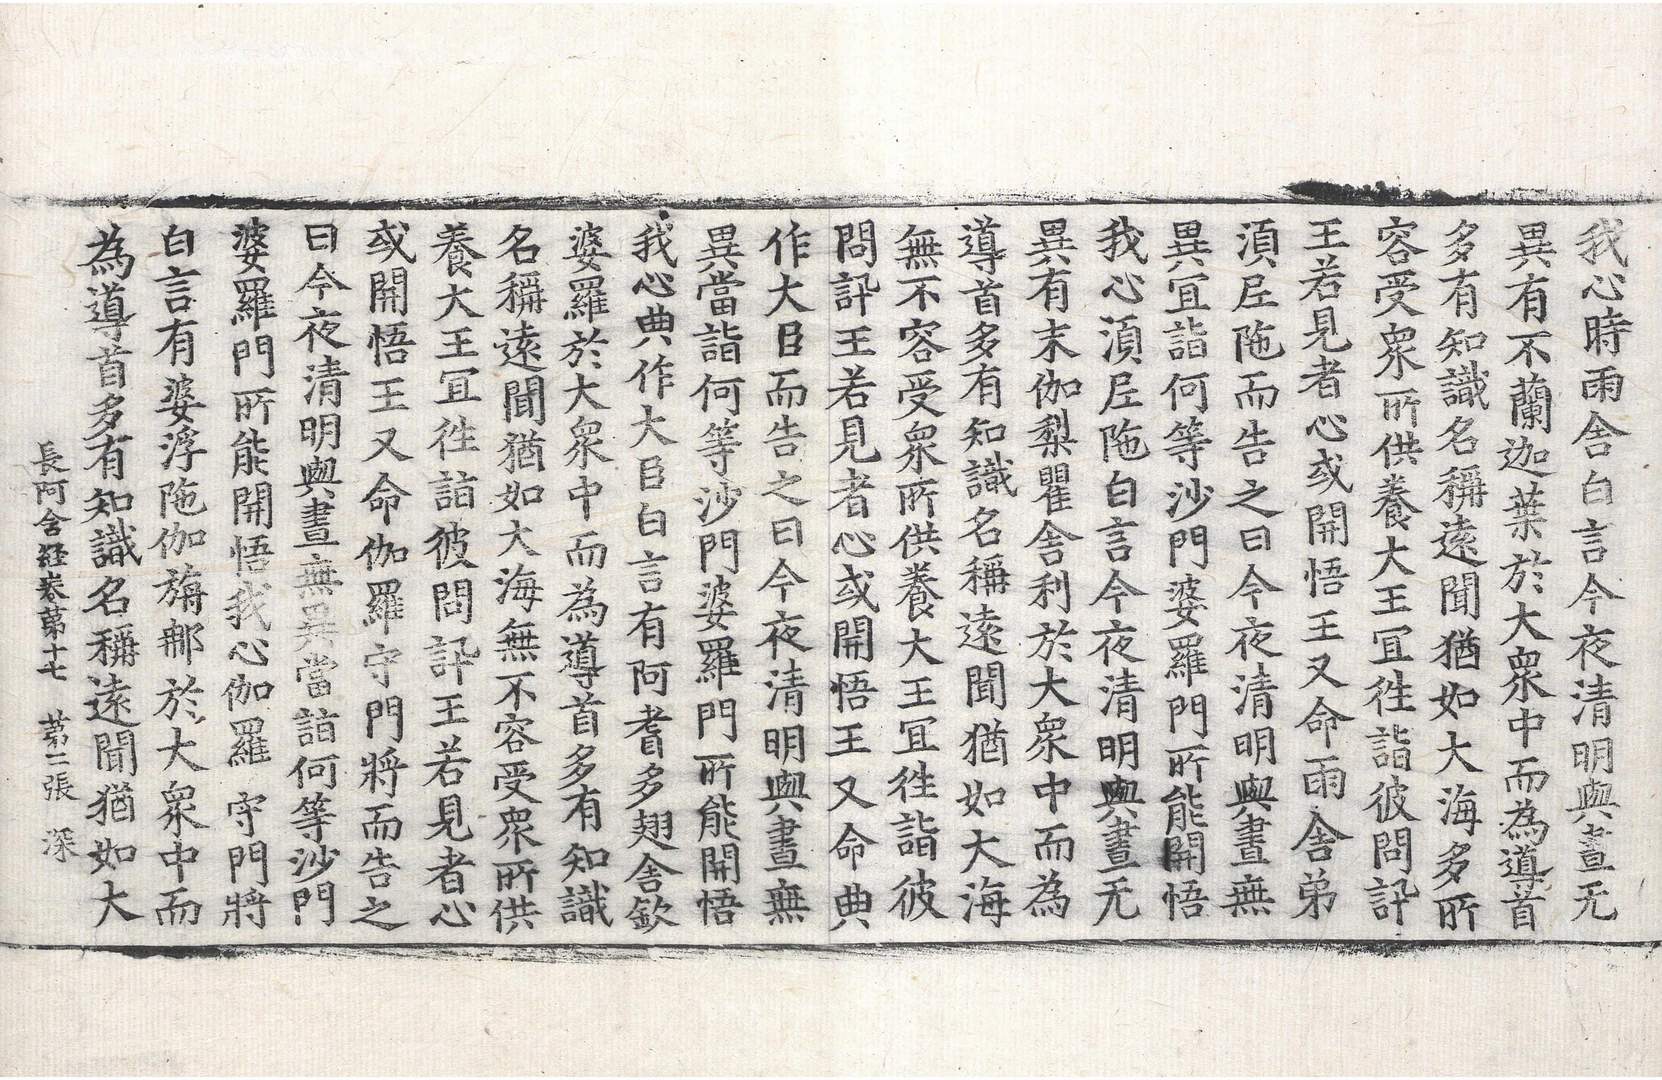 我心時雨舍白言今夜清明與晝无
異有不蘭迦葉於大衆中而為導首
多有知識名稱遠聞猶如大海多所
容受衆所供養大王宜往詣彼問訊
王若見者心或開悟王又命雨舍弟
湏尼陁而告之曰今夜清明與晝無
異宜詣何等沙門婆羅門所能開悟
我心湏尼陁白言今夜清明與晝无
異有末伽梨瞿舍利於大衆中而為
導首多有知識名稱遠聞猶如大海
無不容受衆所供養大王宜往詣彼
問訊王若見者心或開悟王又命典
作大臣而告之曰今夜清明與晝無
異當詣何等沙門婆羅門所能開悟
我心典作大臣白言有阿耆多翅舍欽
婆羅於大衆中而為導首多有知識
名稱遠聞猶如大海無不容受衆所供
養大王宜往詣彼問訊王若見者心
或開悟王又命伽羅守門將而告之
曰今夜清明與晝無異當詣何等沙門
婆羅門所能開悟我心伽羅守門將
白言有婆浮陁伽旃那於大衆中而
為導首多有知識名稱遠聞猶如大
長阿含経卷苐十七　苐二張　深